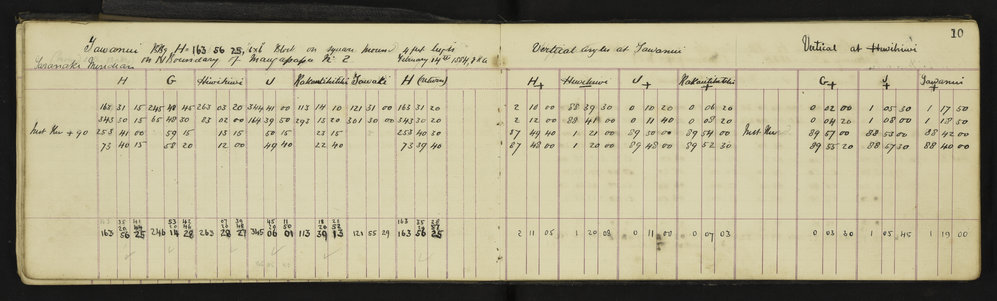 10
Tawanui Bdy H = 163 56 25, ixt Post on square mound 4 feet high
on N Boundary of Maugapapa No 2. February 14th 1884,
Taranaki Meridian
Vertical angles at Tawanui
Vertical at Hiwihiwi
H G Hiwihiwi J Kakautihitihi Tawaki H (return)
H+ Hiwihiwi J+ Kakautihitihi G+ J+ Tawanui+
163 31 15 245 48 45 263 03 20 344 41 00 113 14 10 121 31 00 163 31 20 2 10 00 88 39 30 0 10 20 0 06 20 0 02 00 1 05 30 1 17 50
343 30 15 65 48 30 83 02 00 164 39 50 293 15 20 301 30 00 343 30 20 2 12 00 88 41 00 0 11 40 0 08 20 0 04 20 1 08 00 1 18 50
Inst Rev + 90 253 41 00 59 15 13 15 50 15 23 15 253 40 30 87 49 40 1 21 00 89 50 00 89 54 00 Inst Rev 89 57 00 88 53 00 88 42 00
73 40 15 58 20 12 00 49 40 22 40 73 39 40 87 48 00 1 20 00 89 48 00 89 52 30 89 55 20 88 57 30 88 40 00
35 41 53 42 07 39 45 11 18 21 163 35 28
163 56 25 246 14 28 263 28 27 345 06 01 113 39 13 121 55 29 163 56 25 2 11 05 1 20 08 0 11 00 0 07 03 0 03 30 1 05 45 1 19 00